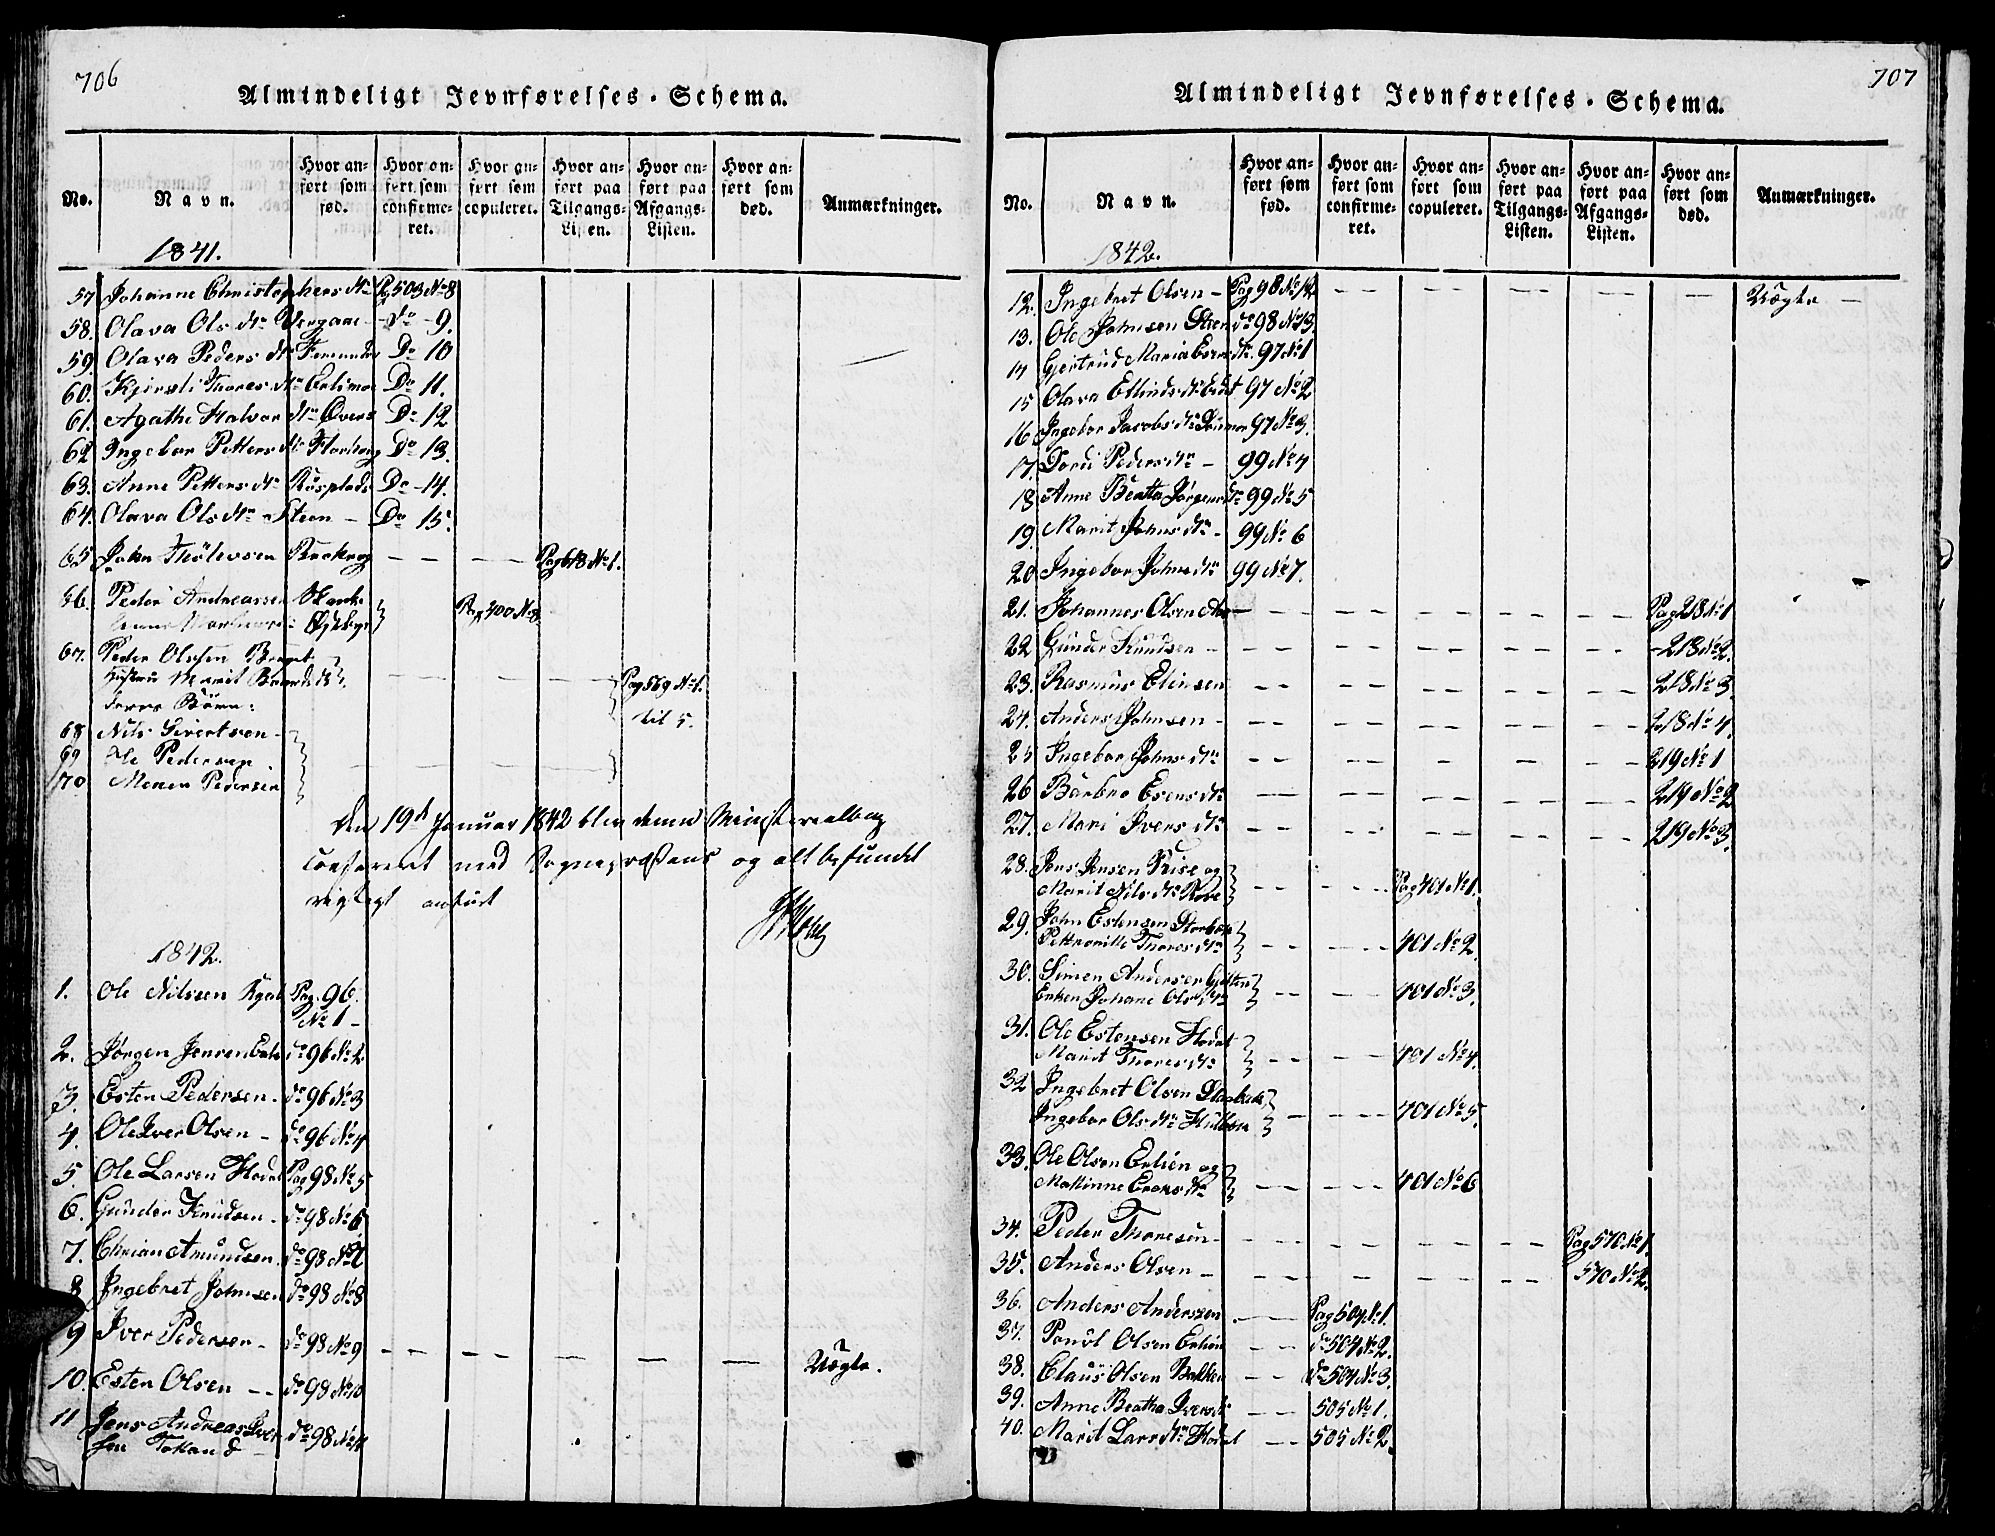 706
Almindeligt Jevnførelses-Schema.
No. Navn. Hvor anført som fød. Hvor anført som confirmeret. Hvor anført som copuleret. Hvor anført paa Tilgangs-Listen. Hvor anført paa Afgangs-Listen. Hvor anført som død. Anmærkninger.
1841.
57 Johanne Christophersdtr Pag 503 No 8
58. Olava Olsdtr do - 9.
59. Olava Pedersdtr Do 10
60. Kjersti Thoresdtr Do 11.
61. Agathe Halvordtr Do 12
62 Ingebor Pettersdtr Do 13.
63. Anne Pettersdtr Do - 14.
64. Olava Olsdtr Steen - Do 15.
65 John - - - Pag 618 No 1.
66. Peder Andreassen Pag 400 No 8
67. Peder Olssen
Marit Pag 569 No 1.
deres Börn: til 5.
68 Nils Sivertsen
69 Ole Pedersen
70 Pedersen
Den 19de Januar 1842 blev denne Ministerialbog
confereret med og alt befundet
rigtigt anført
1842.
1. Ole Nilssen Pag. 96.
No 1 -
2. Jørgen Jensen do 96 No 2
3. Esten Pedersen - do 96 No 3
4. Ole Iver Olsen - do 96 No 4
5. Ole Larsen Hodal Pag 98 No 5
6. Gunder Knudsen - do 98 No 6
7. Amundsen do 98 No 7
8 Ingebret Johnsen do 98 No 8
9 Iver Pedersen - do 98 No 9 - - - - - Uægte.
10. Esten Olsen - - do 98 No 10
11 Jens Andreas Iver do 98 No 11
sen
707
Almindeligt Jevnførelses-Schema.
No. Navn. Hvor anført som fød. Hvor anført som confirmeret. Hvor anført som copuleret. Hvor anført paa Tilgangs-Listen. Hvor anført paa Afgangs-Listen. Hvor anført som død. Anmærkninger.
1842.
12. Ingebret Olsen - Pag 98 No 12 - - - - - Uægte -
13. Ole Johnsen Steen do 98 No 13.
14 Gjertrud Maria do 97 No 1
15 Olava 97 No 2
16 Ingebor Jacobsdtr 97 No 3.
17. Dordi Pedersdtr - 99 No 4
18 Anne Beatha Jørgensdtr 99 No 5
19. Marit Johnsdtr - 99 No 6
20 Ingebor Johnsdtr 99 No 7.
21. Johannes Olsen - - - - - Pag 218 No 1
22 Gunder Knudsen - - - - - - 218 No 2.
23. Rasmus Elinsen - - - - - 218 No 3
24. Anders Johnsen - - - - - - 218 No 4.
25 Ingebor Johnsdtr - - - - - 219 No 1
26 Barbro Esensdtr - - - - - 219 No 2
27. Mari Iversdtr - - - - - 219 No 3.
28. Jens Jensen og
Marit Nilsdtr - - - - Pag 401 No 1.
29. John Estensen
Thoresdtr - - - - 401 No 2.
30. Simen Andersen
Johane Olsdtr - - - - 401 No 3.
31. Ole Estensen Hodal
Marit Thoresdtr - - - - 401 No 4.
32 Ingebret Olsen
Ingebor Olsdtr - - - - 401 No 5.
33. Ole Olsen og
- - - - 401 No 6
34. Peder Thoresen - - - - - Pag 570 No 1.
35. Anders Olsen - - - - - 570 No 2.
36. Anders Anderssen - - Pag 504 No 1.
37. Olsen do 504 No 2.
38. Claus Olsen Bakken - - do 504 No 3.
39. Anne Beatha Iversdtr - - 505 No 1.
40. Marit Larsdtr Hodal - - 505 No 2.